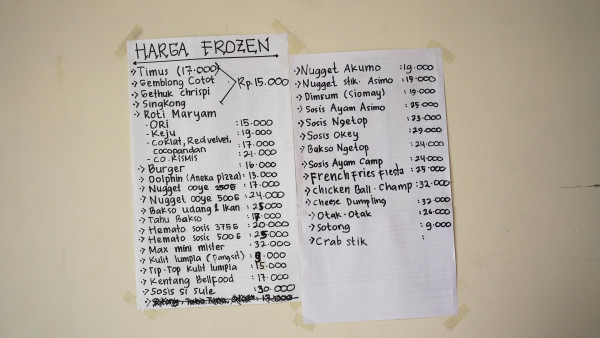 HARGA FROZEN
-> Timus (17.000)
-> Gemblong Cotot
Rp. 15.000
-> Gethuk chrispi
-> Singkong
-> Roti Maryam
- ORI : 15.000
- Keju : 19.000
- Coklat, Red velvet, : 17.000
cocopandan
- CO. KISMIS : 21.000
-> Burger : 16.000
-> Dolphin (Aneka pizza) : 13.000
-> Nugget ooye 250 G : 17.000
-> Nugget ooye 500 G : 24.000
-> Bakso udang & Ikan : 25000
-> Tahu Bakso
-> Hemato sosis 375 G : 20.000
-> Hemato sosis 500 G : 25.000
-> Max mini mister : 32.000
-> Kulit lumpia (Pangsit) : .000
-> Tip-Top Kulit lumpia : 15.000
-> Kentang Bellfood : 17.000
-> Sosis si sule : 30.000
-> Nugget Akumo : 19.000
-> Nugget stik. Asimo : 15.000
-> Dimsum (Siomay) : 19.000
-> Sosis Ayam Asimo : 25 000
-> Sosis Ngetop : 23.000
-> Sosis Okey : 29.000
-> Bakso Ngetop : 24.000
-> Sosis Ayam Camp : 24.000
-> French Fries Fiesta : 25.000
-> Chicken Ball. Champ : 32.000
-> Cheese Dumpling : 32.000
-> Otak-Otak : 26.000
-> Sotong : 9.000
-> Crab stik :